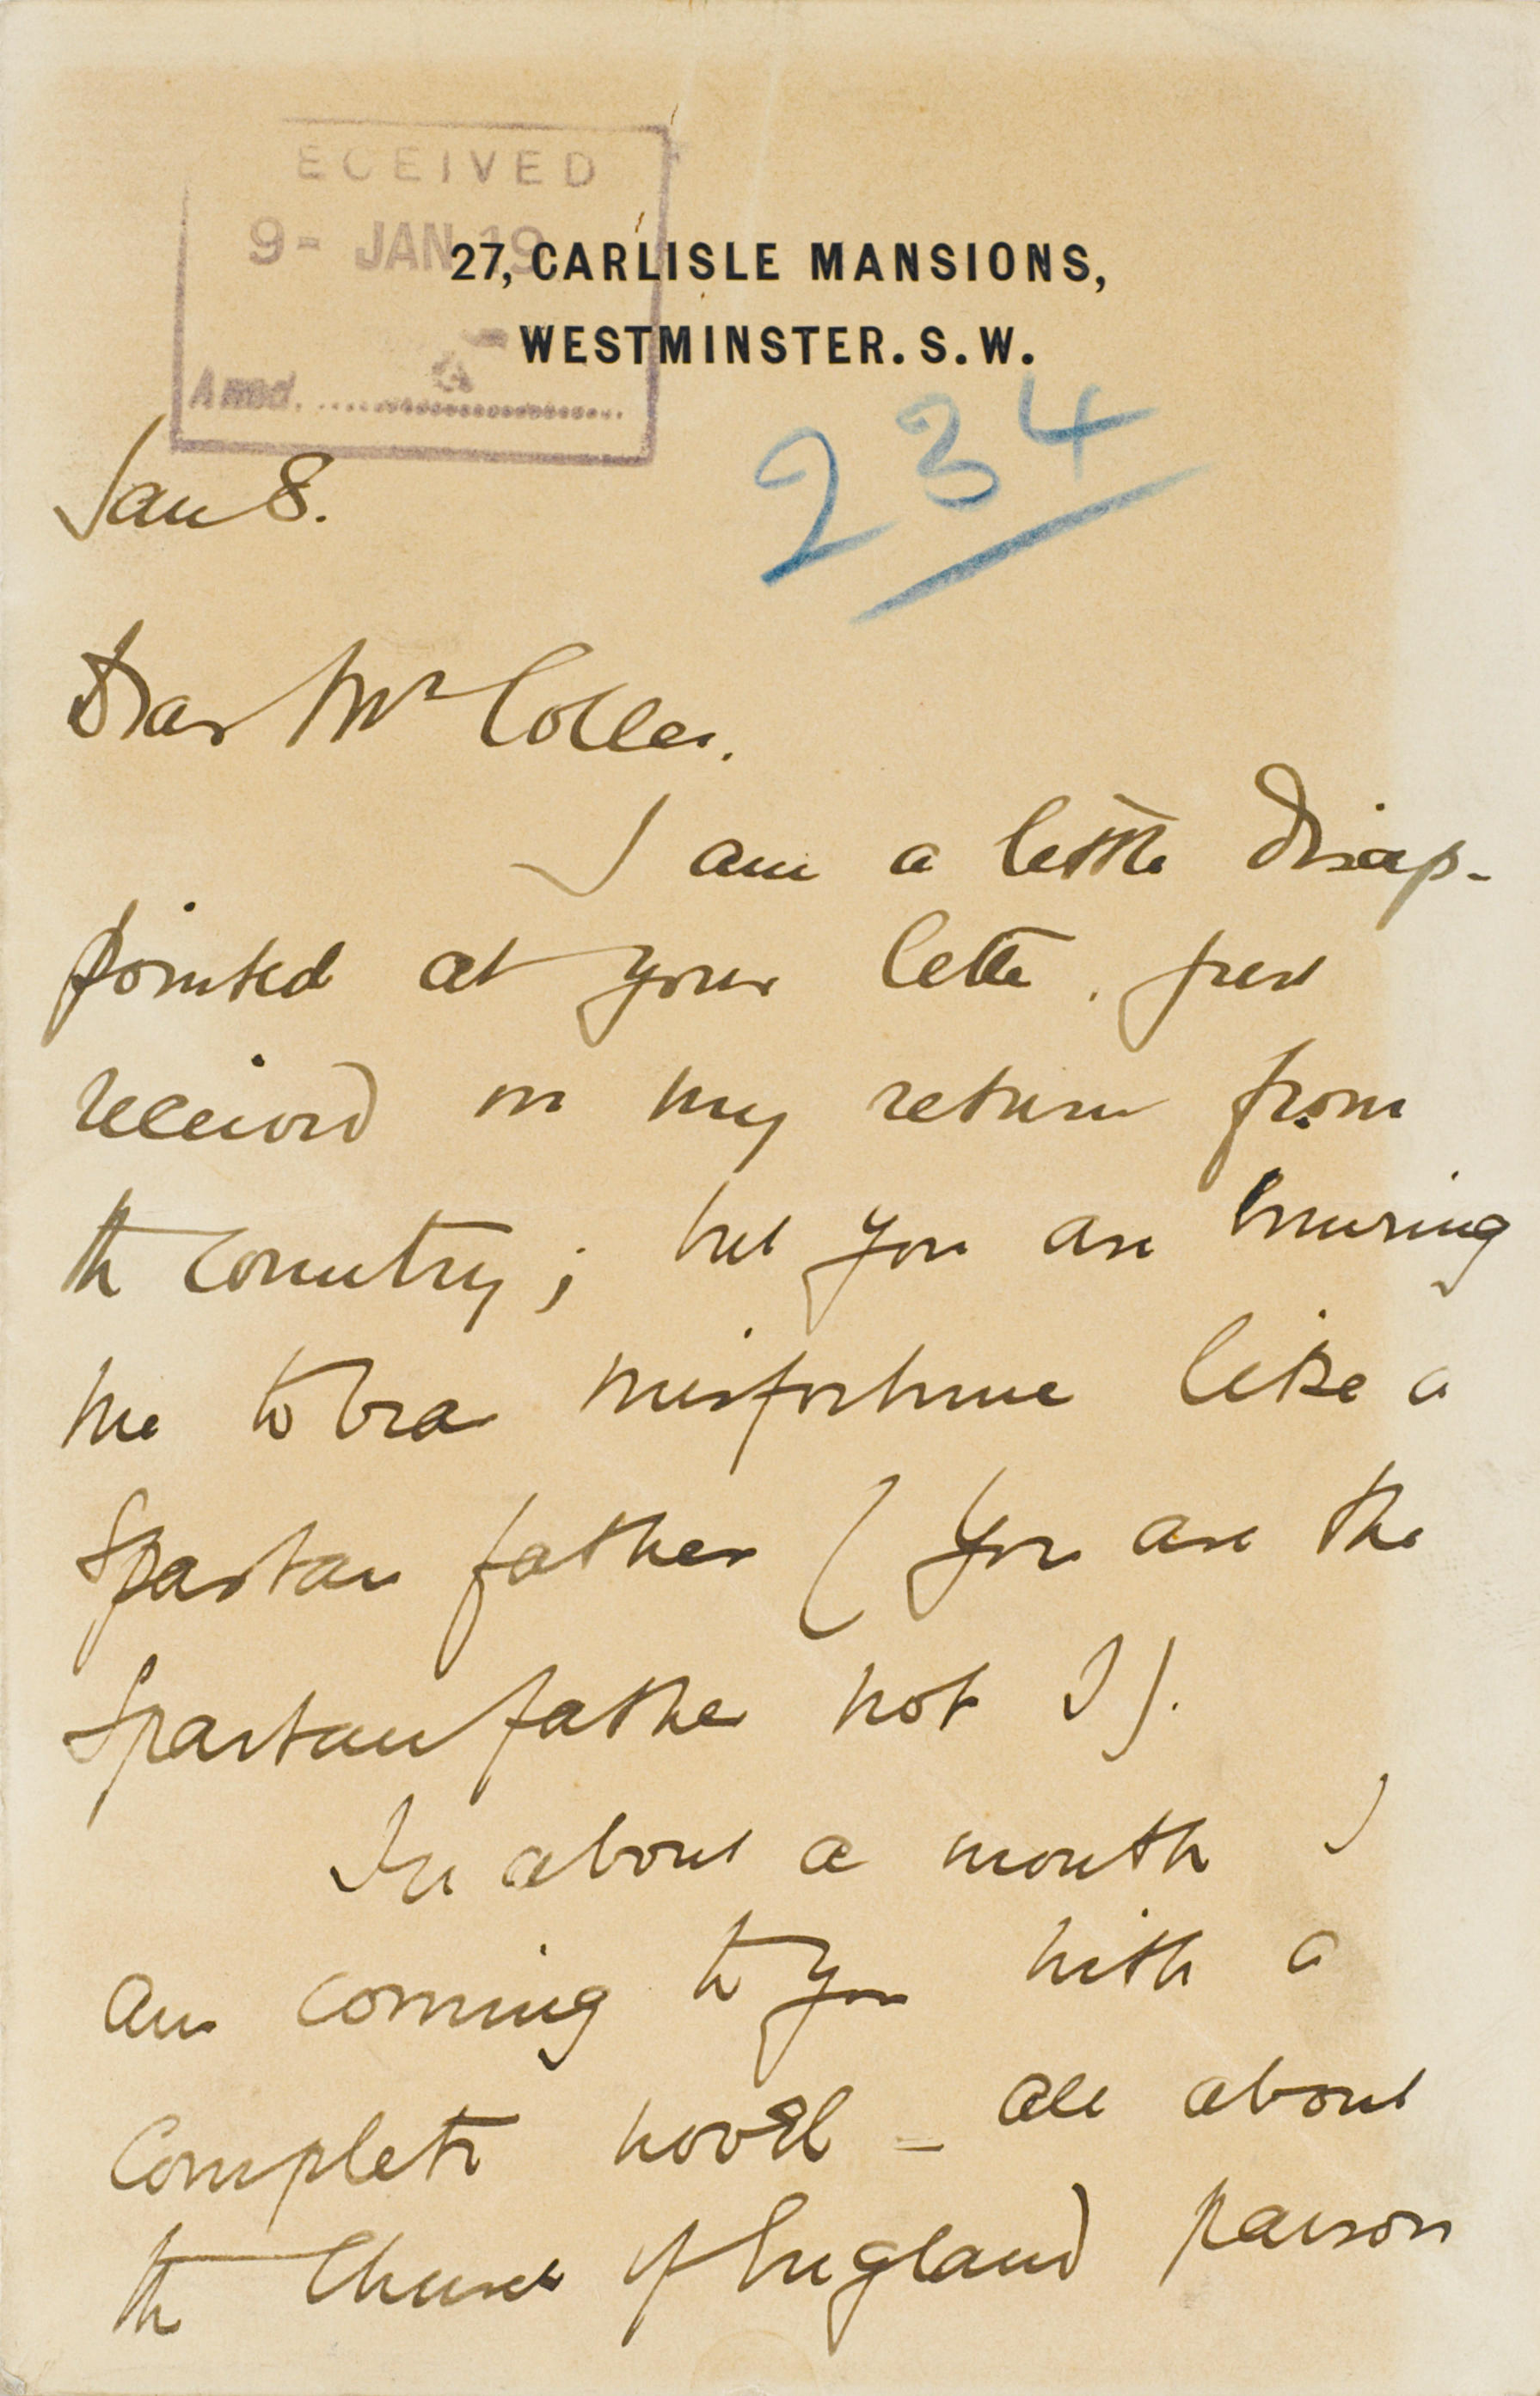 ECEIVED
9- JAN 19
27, CARLISLE MANSIONS,
WESTMINSTER. S. W.
Ansd.
234
Jan 8.
Dear Mr Colles.
I am a little disap-
pointed at your letter. just
received on my return from
the country; but you are
me to bear misfortune like a
Spartan father (you are the
Spartan father not I).
In about a month I
am coming to you with a
complete novel _ all about
the Church of England parson